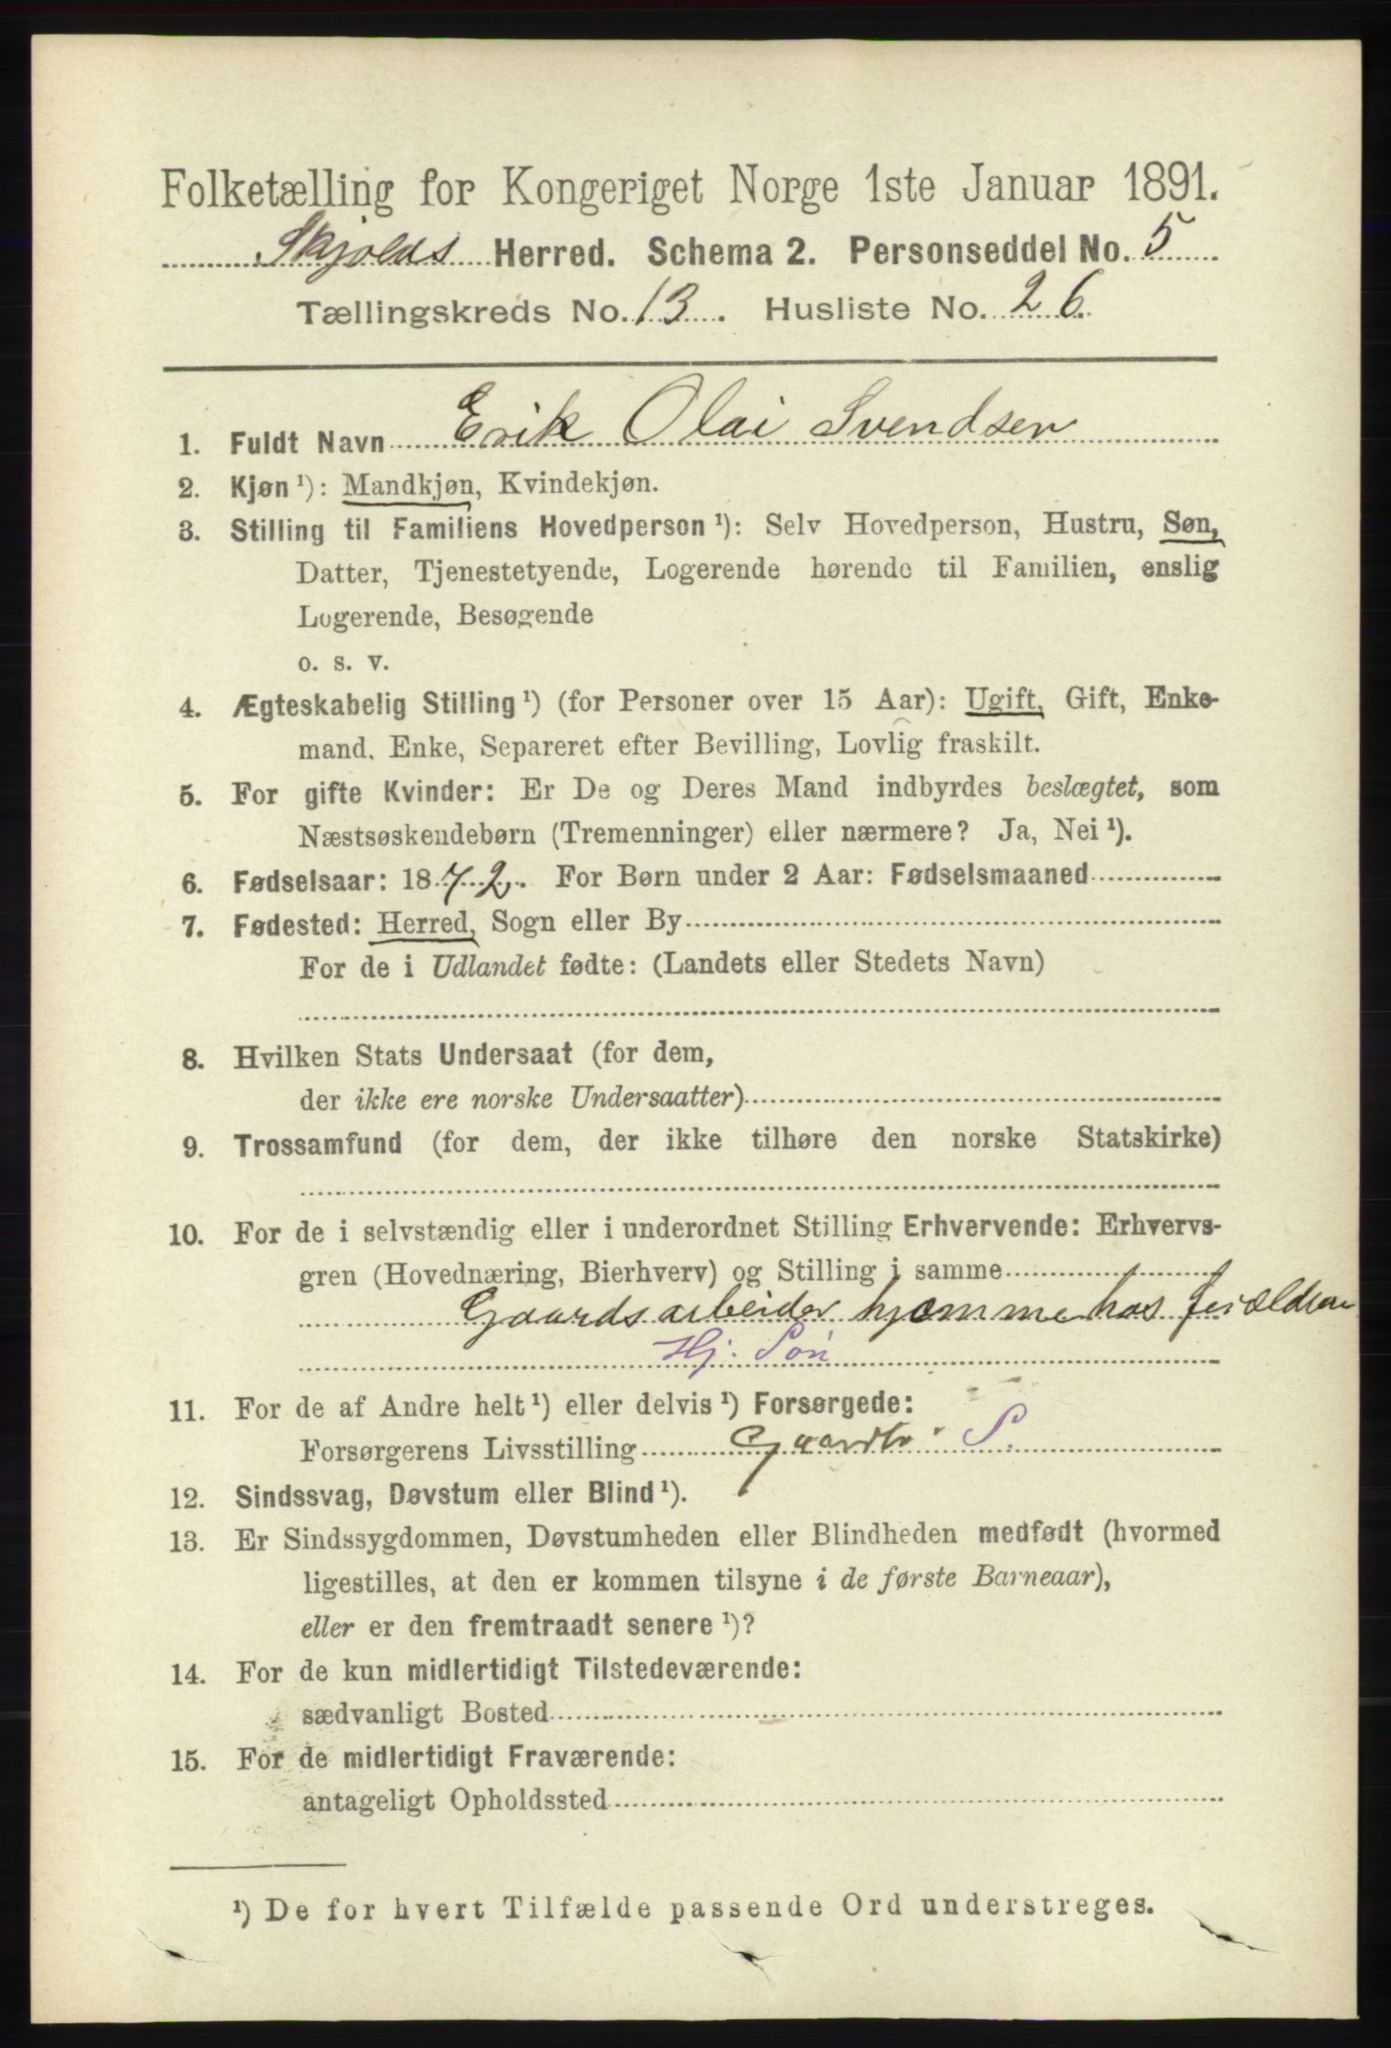 Folketælling for Kongeriget Norge 1ste Januar 1891.
Skjolds Herred. Schema 2. Personseddel No. 5
Tællingskreds No. 13. Husliste No. 26.
1. Fuldt Navn Erik Olai Svendsen
2. Kjøn ¹): Mandkjøn, Kvindekjøn.
3. Stilling til Familiens Hovedperson ¹): Selv Hovedperson, Hustru, Søn,
Datter, Tjenestetyende, Logerende hørende til Familien, enslig
Logerende, Besøgende
o. s. v.
4. Ægteskabelig Stilling ¹) (for Personer over 15 Aar): Ugift, Gift, Enke-
mand, Enke, Separeret efter Bevilling, Lovlig fraskilt.
5. For gifte Kvinder: Er De og Deres Mand indbyrdes beslægtet, som
Næstsøskendebørn (Tremenninger) eller nærmere? Ja, Nei ¹).
6. Fødselsaar: 1872. For Børn under 2 Aar: Fødselsmaaned
7. Fødested: Herred, Sogn eller By
For de i Udlandet fødte: (Landets eller Stedets Navn)
8. Hvilken Stats Undersaat (for dem,
der ikke ere norske Undersaatter)
9. Trossamfund (for dem, der ikke tilhøre den norske Statskirke)
10. For de i selvstændig eller i underordnet Stilling Erhvervende: Erhvervs-
gren (Hovednæring, Bierhverv) og Stilling i samme
Gaardsarbeider hjemme hos forældrene
Hj. Søn
11. For de af Andre helt ¹) eller delvis ¹) Forsørgede:
Forsørgerens Livsstilling Gaardbr. S.
12. Sindssvag, Døvstum eller Blind ¹).
13. Er Sindssygdommen, Døvstumheden eller Blindheden medfødt (hvormed
ligestilles, at den er kommen tilsyne i de første Barneaar),
eller er den fremtraadt senere ¹)?
14. For de kun midlertidigt Tilstedeværende:
sædvanligt Bosted
15. For de midlertidigt Fraværende:
antageligt Opholdssted
¹) De for hvert Tilfælde passende Ord understreges.